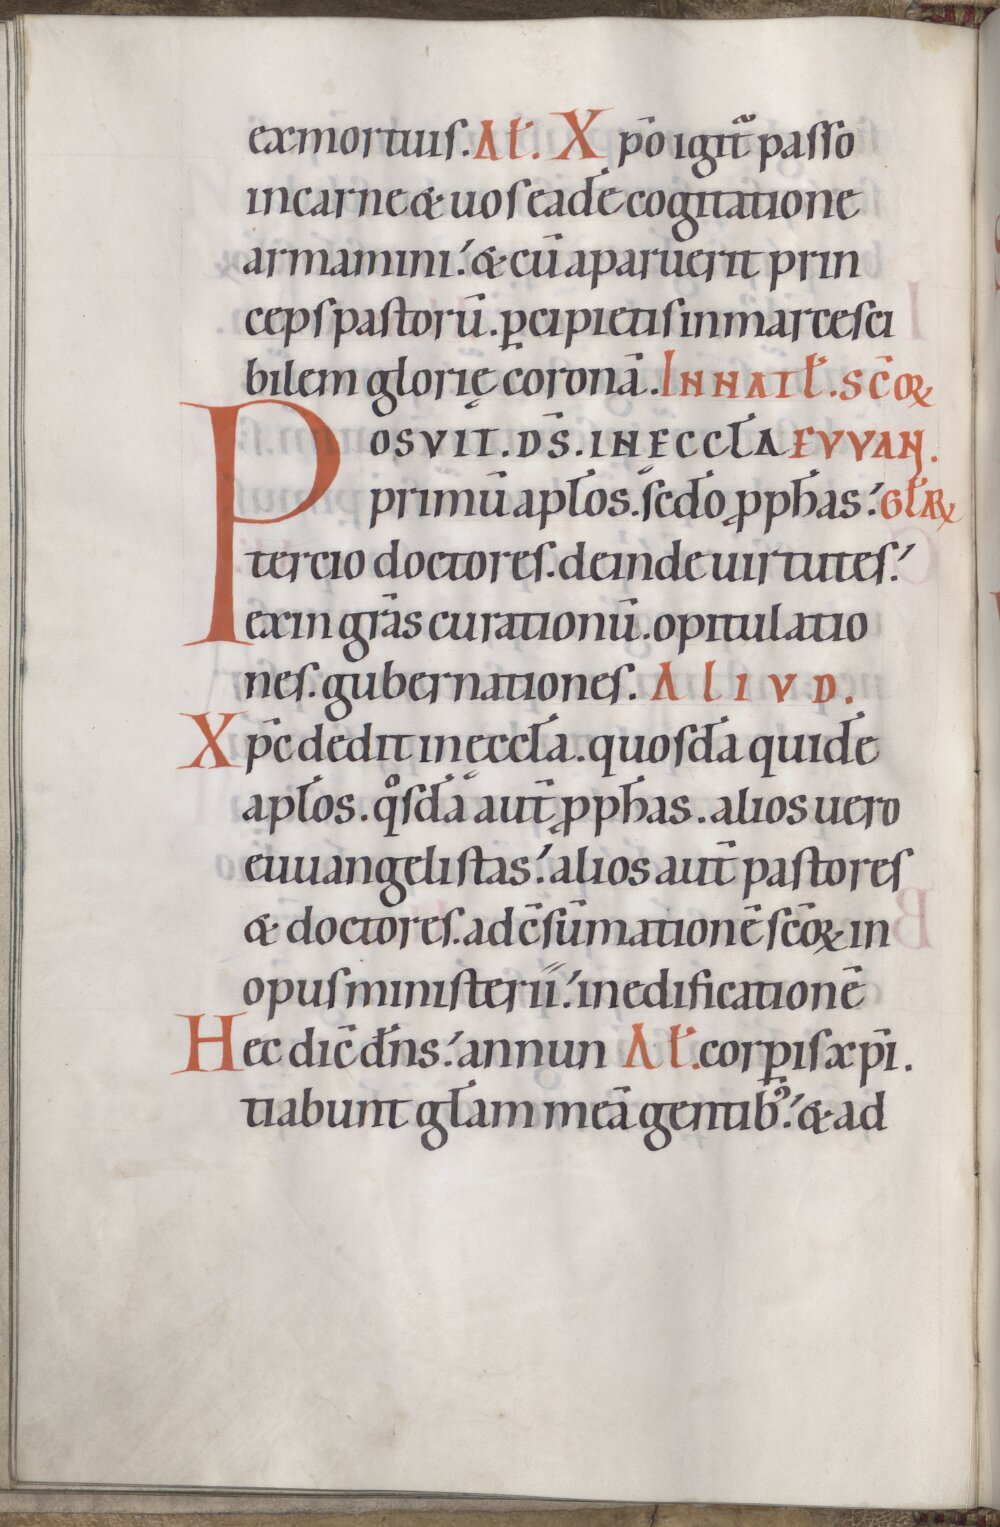 exmortuis. Al̄. Xp̄o igit̄ passo
incarne & uos eadē cogitatione
armamini. & cū aparuerit prin
ceps pastorū. ꝑcipietis inmarcesci
bilem glorię coronā. IN NATL̄. SC̄OꝜ
POSVIT. DS̄. IN ECCL̄A EVVAN
primū apl̄os. sc̄do ꝓph̄as. GL̄AꝜ
tercio doctores. deinde uirtutes.
exin gr̄as curationū. opitulatio
nes. gubernationes. ALIVD.
Xp̄c dedit in ęccl̄a. quosdā quidē
apl̄os. qͦsdā aut̄ ꝓph̄as. alios uero
euuangelistas. alios aut̄ pastores
& doctores. ad c̄sūmationē sc̄oꝝ in
opus ministerii. in edificationē
Hec dic̄ dn̄s. annun Al̄. corꝑis xp̄i.
tiabunt gl̄am meā gentibꝰ. & ad